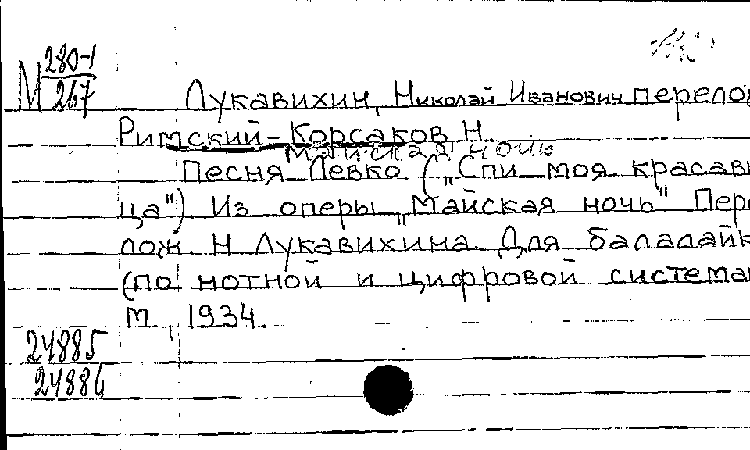 М 280-1
267
Лукавихин, Николай Иванович перелож
Римский-Корсаков Н.
Майская ночь
Песня Левко („Спи моя красави
ца") Из оперы „Майская ночь" Пере
лож Н Лукавихина Для балалайк
(по нотной и цифровой система
м, 1934.
24885
24886